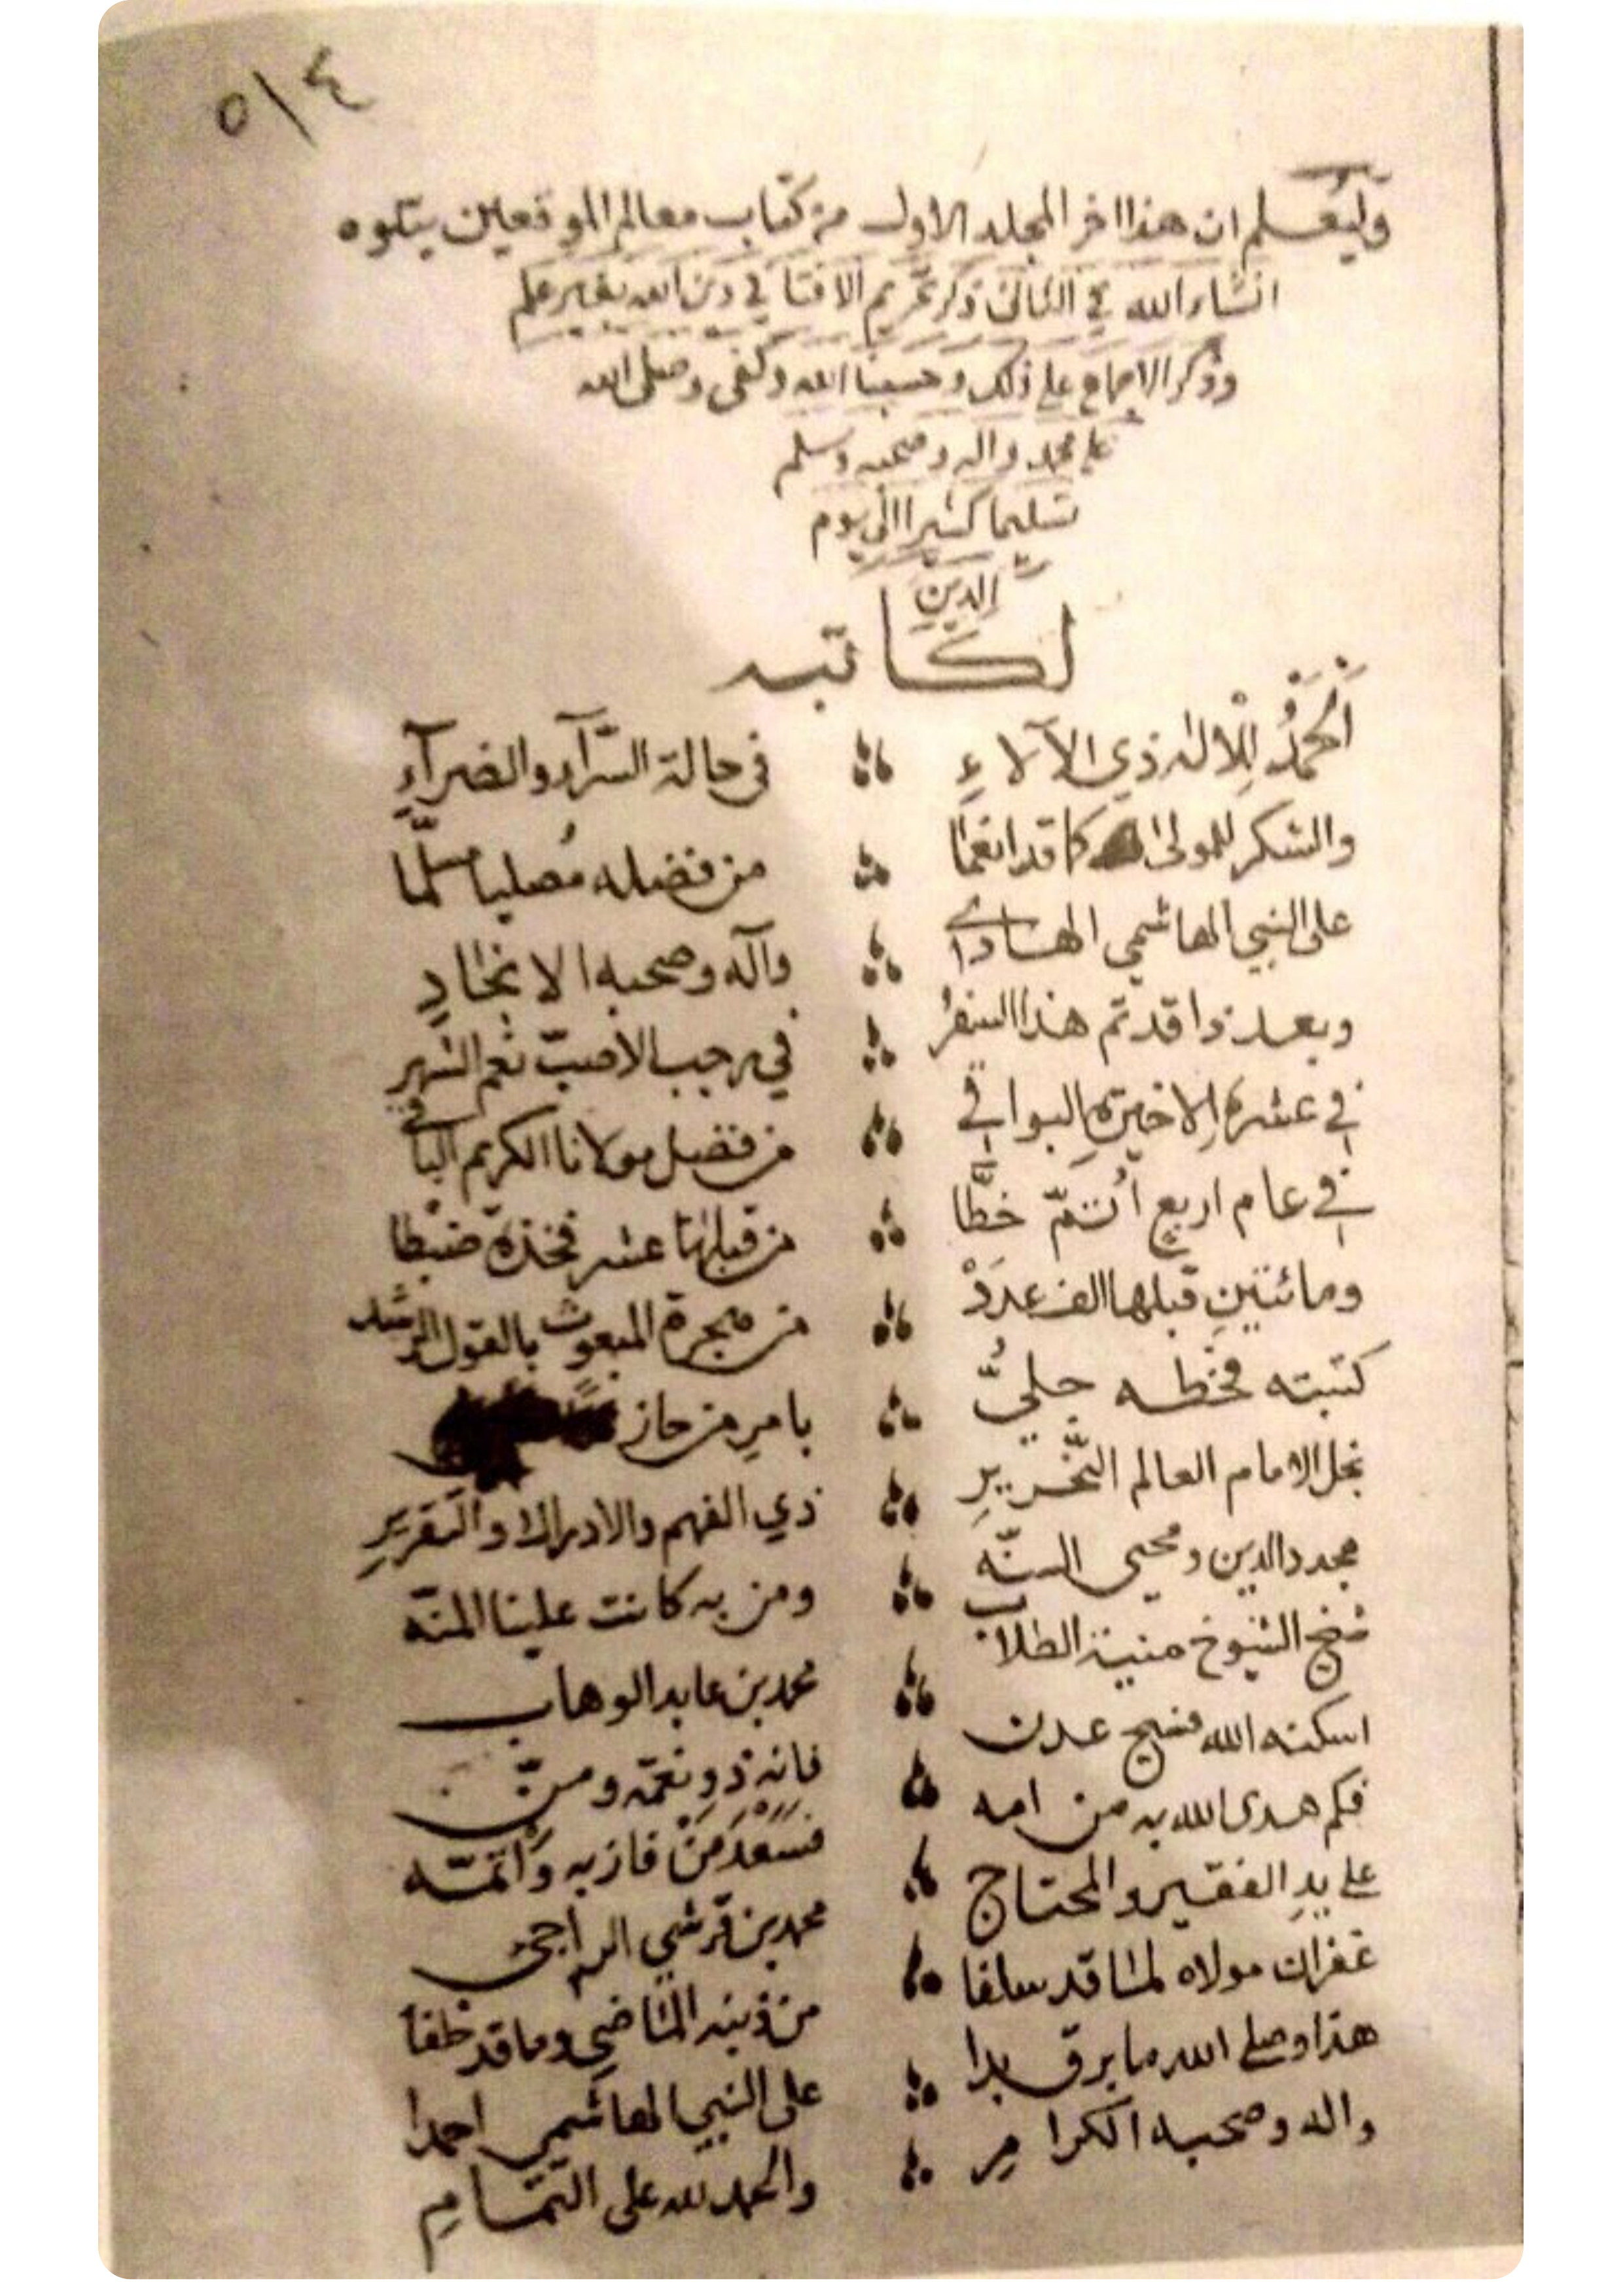 ٥١٤
وليعلم ان هذا اخر المجلد الاول من كتاب معالم الموقعين يتلوه
انشاء الله في الثاني ذكر تحريم الافتا في دين الله بغير علم
وذكر الاجماع على ذلك وحسبنا الله وكفى وصلى الله
على محمد واله وصحبه وسلم
تسليما كثيرا الى يوم
الدين
لكاتبه
اَلحَمْدُ لِلْاله ذي الآلاءِ في حالة السّرآء والضرآءِ
والشكر للمولى كما قد انعما من فضله مُصليا مسلّما
على النبي الهاشمي الهادي وآله وصحبه الانجادِ
وبعد ذا قد تم هذا السفرُ في رجب الاصبّ نعم الشهر
في عشره الاخيرةِ البواقي من فضل مولانا الكريم الباقي
في عام اربع اُتمّ خطَّا من قبلها عشر فخذه ضبْطا
ومائتينِ قبلها الف عدَدْ من هجرة المبعوث بالقول الرشد
كتبته فخطه جليُّ بامرِ من حاز
نجل الامام العالم النّحريرِ ذي الفهم والادراك والتقريرِ
مجدد الدين ومحيى السنّه ومن به كانت علينا المنّه
شيخ الشيوخ منية الطلاب محمد بن عابد الوهاب
اسكنه الله فسيح عدن فانه ذو نعمّه ومنّ
فكم هدى الله به من امه فسَعْدَ مَنْ فاز به وَأتمّه
على يدِ الفقير والمحتاج محمد بن قرشي الراجي
غفران مولاه لما قد سلفا من ذنبه الماضي وما قد خلفا
هذا وصلى الله ما برق بدا على النبي الهاشمي احمدا
واله وصحبه الكرامِ والحمد لله على التمامِ